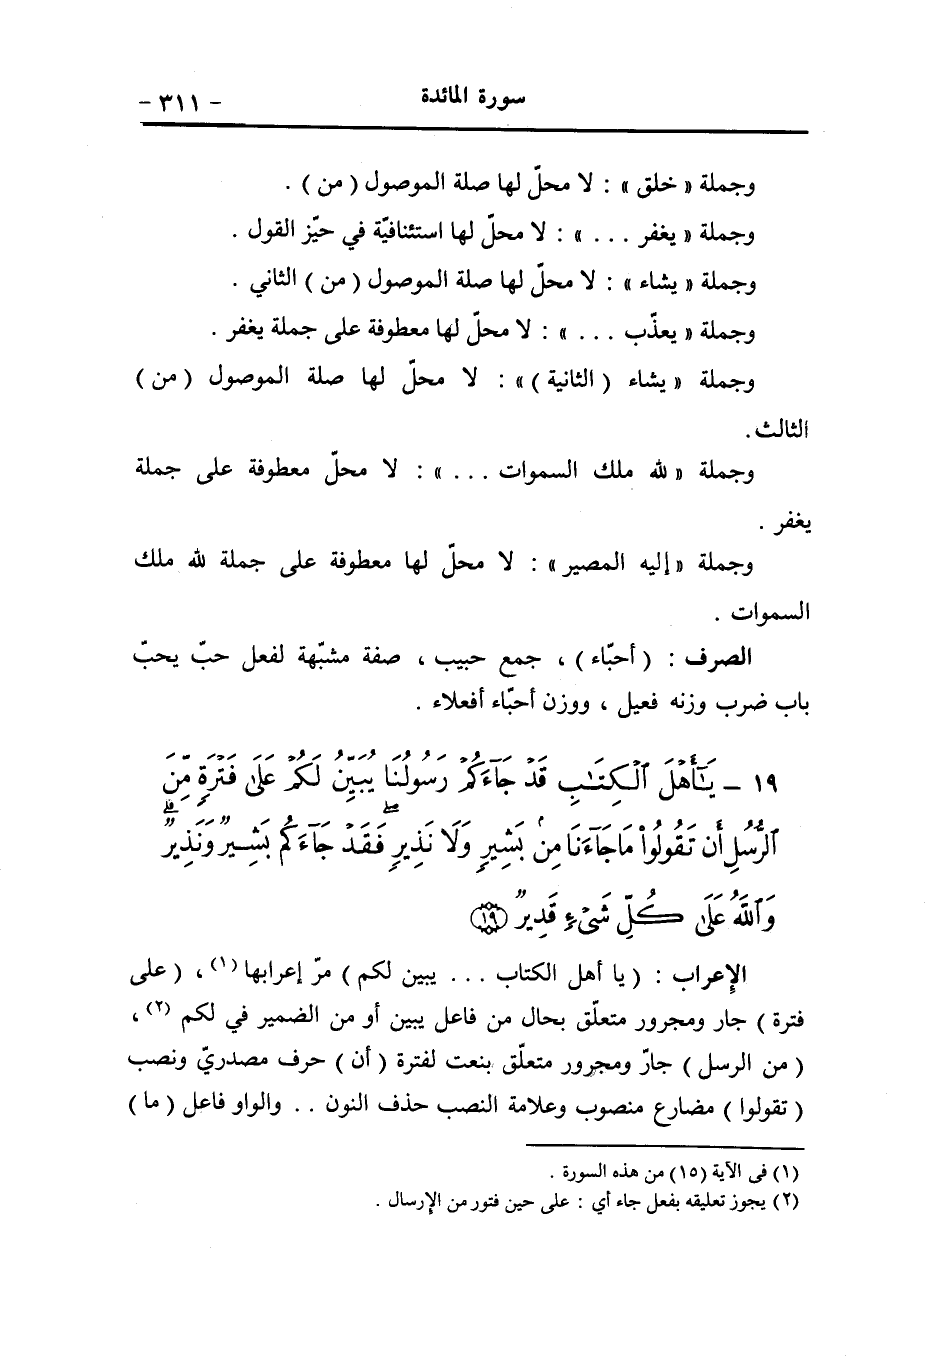 سورة المائدة
- ٣١١ -
وجملة « خلق » : لا محلّ لها صلة الموصول ( من ) .
وجملة « يغفر . . . » : لا محلّ لها استئنافيّة في حيّز القول .
وجملة « يشاء » : لا محلّ لها صلة الموصول ( من ) الثاني .
وجملة « يعذّب . . . » : لا محلّ لها معطوفة على جملة يغفر .
وجملة « يشاء ( الثانية ) » : لا محلّ لها صلة الموصول ( من )
الثالث .
وجملة « لله ملك السموات . . . » : لا محلّ معطوفة على جملة
يغفر .
وجملة « إليه المصير » : لا محلّ لها معطوفة على جملة لله ملك
السموات .
الصرف : ( أحبّاء ) ، جمع حبيب ، صفة مشبّهة لفعل حبّ يحبّ
باب ضرب وزنه فعيل ، ووزن أحبّاء أفعلاء .
١٩ – يَٰٓأَهْلَ ٱلْكِتَٰبِ قَدْ جَآءَكُمْ رَسُولُنَا يُبَيِّنُ لَكُمْ عَلَىٰ فَتْرَةٍ مِّنَ
ٱلرُّسُلِ أَن تَقُولُوا۟ مَا جَآءَنَا مِنۢ بَشِيرٍ وَلَا نَذِيرٍ ۖ فَقَدْ جَآءَكُم بَشِيرٌ وَنَذِيرٌ ۗ
وَٱللَّهُ عَلَىٰ كُلِّ شَىْءٍ قَدِيرٌ ﴿١٩﴾
الإعراب : ( يا أهل الكتاب . . . يبين لكم ) مرّ إعرابها (١) ، ( على
فترة ) جار ومجرور متعلّق بحال من فاعل يبين أو من الضمير في لكم (٢) ،
( من الرسل ) جارّ ومجرور متعلّق بنعت لفترة ( أن ) حرف مصدريّ ونصب
( تقولوا ) مضارع منصوب وعلامة النصب حذف النون . . والواو فاعل ( ما )
(١) فى الآية (١٥) من هذه السورة .
(٢) يجوز تعليقه بفعل جاء أي : على حين فتور من الإرسال .